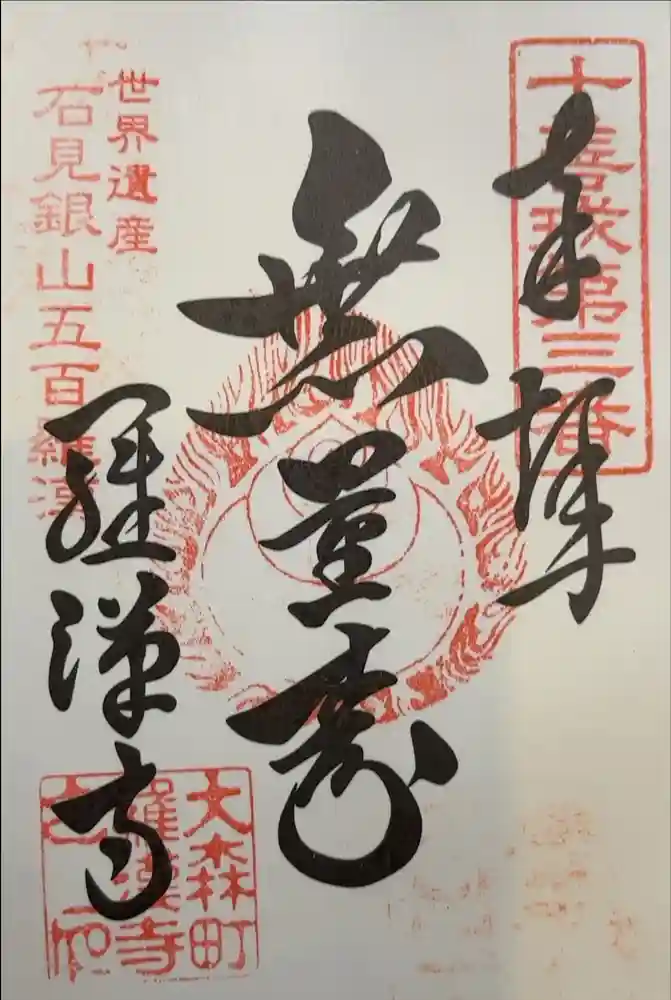 十善戒第三番
奉拝
無量寿
世界遺産
石見銀山五百羅漢
羅漢寺
大森町
羅漢寺